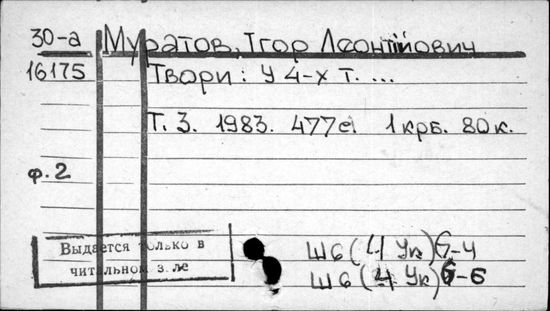 30-а Муратов, Ігор Леонтійович
16175 Твори: У 4-х т. ...
Т. 3. 1983. 477с. 1 крб. 80 к.
ф. 2
Выдается только в
читальном зале
Ш6(4Ук)6-4
Ш6(4Ук)6-6